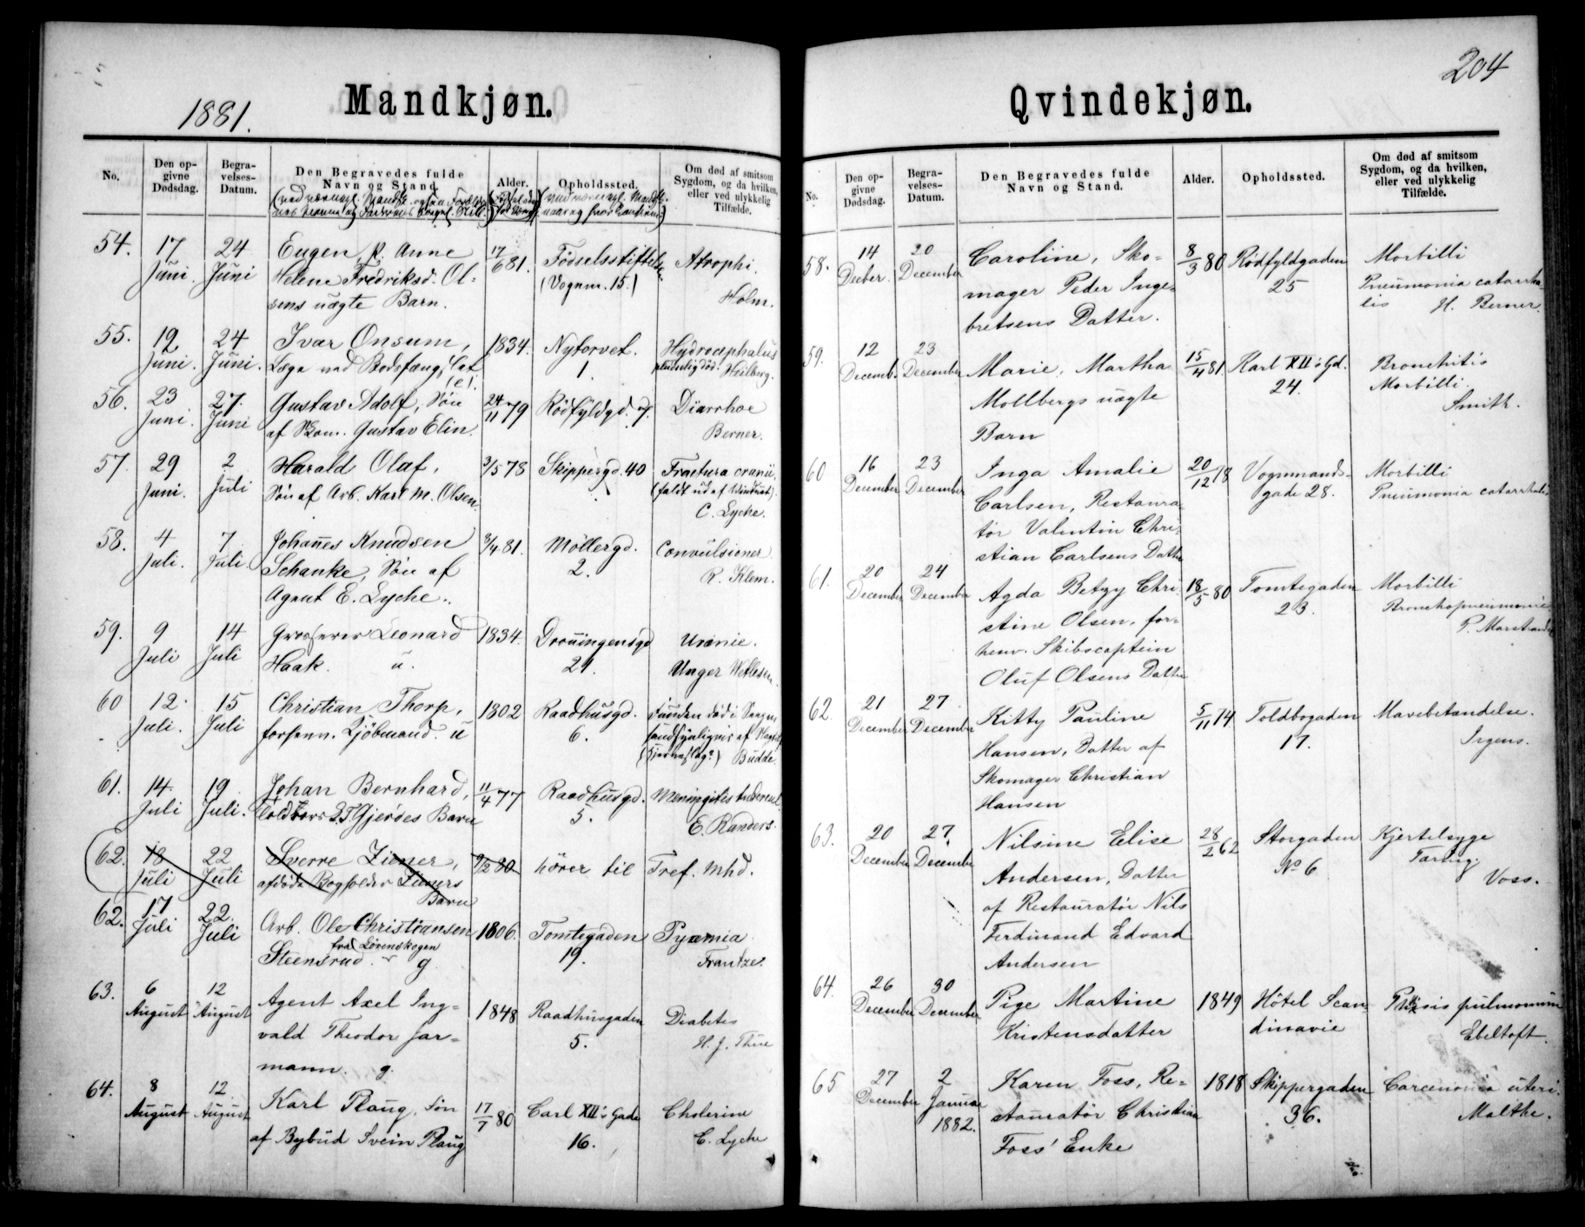 1881.
Mandkjøn.
No.
Den op-
givne
Dødsdag.
Begra-
velses-
Datum.
Den Begravedes fulde
Navn og Stand.
Alder.
Opholdssted.
Om død af smitsom
Sygdom, og da hvilken,
eller ved ulykkelig
Tilfælde.
54. 17 Juni. 24 Juni
Eugen, p. Anne
Helene Fredriksd. Ol-
sens uægte Barn.
17/6 81. Fødselsstiftelsen
(Vognm. 15.)
Atrophi.
Holm.
55. 19 Juni. 24 Juni.
Ivar Onsum,
Læge ved Bodsfæng,
1834. Nytorvet.
1.
Hydrocephalus
pludselig død. Heiberg.
56. 23 Juni. 27. Juni
Gustav Adolf, Søn
af Gustav Elin.
24/11 79 Rödfyldgd. 7.
Diarrhoe
Berner.
57. 29 Juni. 2 Juli
Harald Olaf,
Søn af Arb. Karl M. Olsen.
3/5 78 Skippergd. 40
Fractura cranii,
(faldt ud af Vinduet).
C. Lyche.
58. 4 Juli. 7 Juli
Johannes Knudsen
Schanke, Søn af
Agent E. Lyche.
3/4 81. Møllergd.
2.
Convulsioner
R. Klem.
59. 9 Juli 14 Juli
Grosserer Leonard
Haak. u.
1834. Dronningensgd
21.
Urænie.
Unger Vetlesen.
60 12. Juli. 15 Juli
Christian Thorp,
forhenv. Sjöbmand u
1802 Raadhusgd.
6.
Budde
61. 14. Juli 19. Juli.
Johan Bernhard,
Gjerdes Barn
11/4 77 Raadhusgd.
5.
Meningites tubercul.
E. Randers.
62. 18 Juli 22 Juli
Sverre
afdøde Bogholder
Barn
9/2 80 hører til Tref. Mhd.
62. 17 Juli 22. Juli
Arb. Ole Christiansen
fra Lørenskogen
Steensrud. g.
1806. Tomtegaden
19.
Pyæmia
Frantze.
63. 6 August 12 August
Agent Axel Ing-
vald Theodor Jar-
mann. g.
1848 Raadhusgaden
5.
Diabetes
H. J. Thue
64. 8 August 12 August
Karl Plaug, Søn
af Bybud Svein Plaug
17/7 80 Carl XII's Gade
16.
Cholerine
C. Lyche
204
Qvindekjøn.
No.
Den op-
givne
Dødsdag.
Begra-
velses-
Datum.
Den Begravedes fulde
Navn og Stand.
Alder.
Opholdssted.
Om død af smitsom
Sygdom, og da hvilken,
eller ved ulykkelig
Tilfælde.
58. 14 Decber. 20 December
Caroline, Sko-
mager Peder Inge-
bretsens Datter.
8/3 80 Rödfyldgaden
25
Morbilli
Pneumonia catarrha-
lis H. Berner.
59. 12 Decemb. 23 December
Marie, Martha
Mollbergs uægte
Barn
15/4 81 Karl XII's Gd.
24.
Bronchitis
Morbilli.
Smith.
60 16 December 23 December
Inga Amalie
Carlsen, Restaura-
tør Valentin Chri-
stian Carlsens Datter
20/12 78 Vognmands-
gade 28.
Morbilli
Pneumonia catarrhalis
61. 20 December 24 December
Agda Betzy Chri-
stine Olsen, for-
henv. Skibscaptein
Oluf Olsens Datter
18/5 80 Tomtegaden
23.
Morbilli
Bronchopneumonie
P. Marstrander
62. 21 December 27 December
Kitty Pauline
Hansen, Datter af
Skomager Christian
Hansen
5/11 74 Toldbogaden
17.
Mavebetændelse.
Irgens.
63. 20 December 27. December
Nilsine Elise
Andersen, Datter
af Restauratør Nils
Ferdinand Edvard
Andersen
28/2 62 Storgaden
No 6
Kjertelsyge
Tæring.
Voss.
64. 26 December 30 December
Pige Martine
Kristensdatter
1849 Hôtel Scan-
dinavie
Phtisis pulmonum
Ebeltoft.
65 27 December 2 Januar 1882.
Karen Foss, Re-
stauratør Christian
Foss' Enke
1818 Skippergaden
36.
Carcinoma uteri.
Malthe.